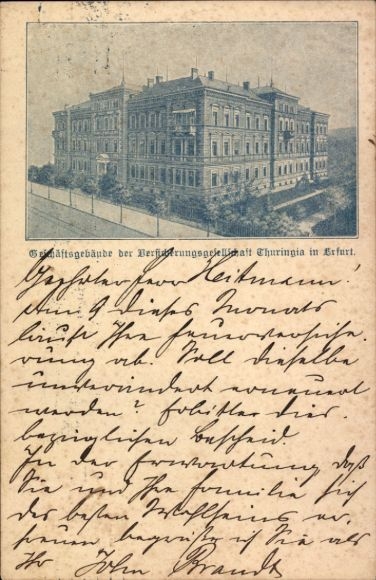 Geschäftsgebäude der Versicherungsgesellschaft Thuringia in Erfurt.
Geehrter Herr Heitmann!
Am 9 dieses Monats
läuft Ihre Feuerversiche
rung ab. Soll dieselbe
unverändert erneuert
werden? Erbitte dies-
bezüglichen Bescheid.
In der Erwartung, daß
Sie und Ihre Familie sich
des besten Wohlseins er-
freuen begrüße ich Sie als
Ihr John Brandt